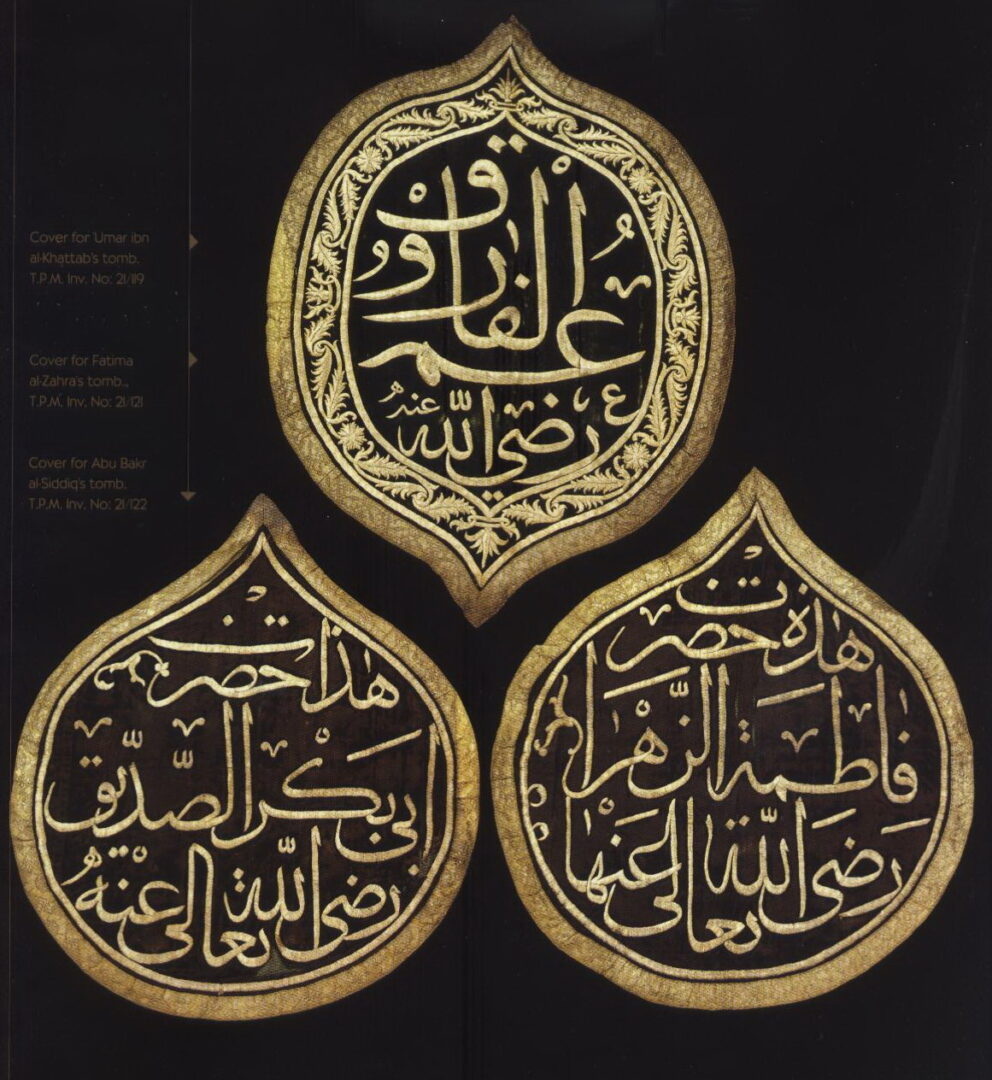 Cover for 'Umar ibn
al-Khaṭṭab's tomb.
T.P.M. Inv. No: 21/119
Cover for Fatima
al-Zahra's tomb.,
T.P.M. Inv. No: 21/121
Cover for Abu Bakr
al-Siddiq's tomb.
T.P.M. Inv. No: 21/122
عمر الفاروق
رضي الله عنه
هذا حضرت
ابي بكر الصديق
رضى الله تعالى عنه
هذه حضرت
فاطمة الزهرا
رضى الله تعالى عنها